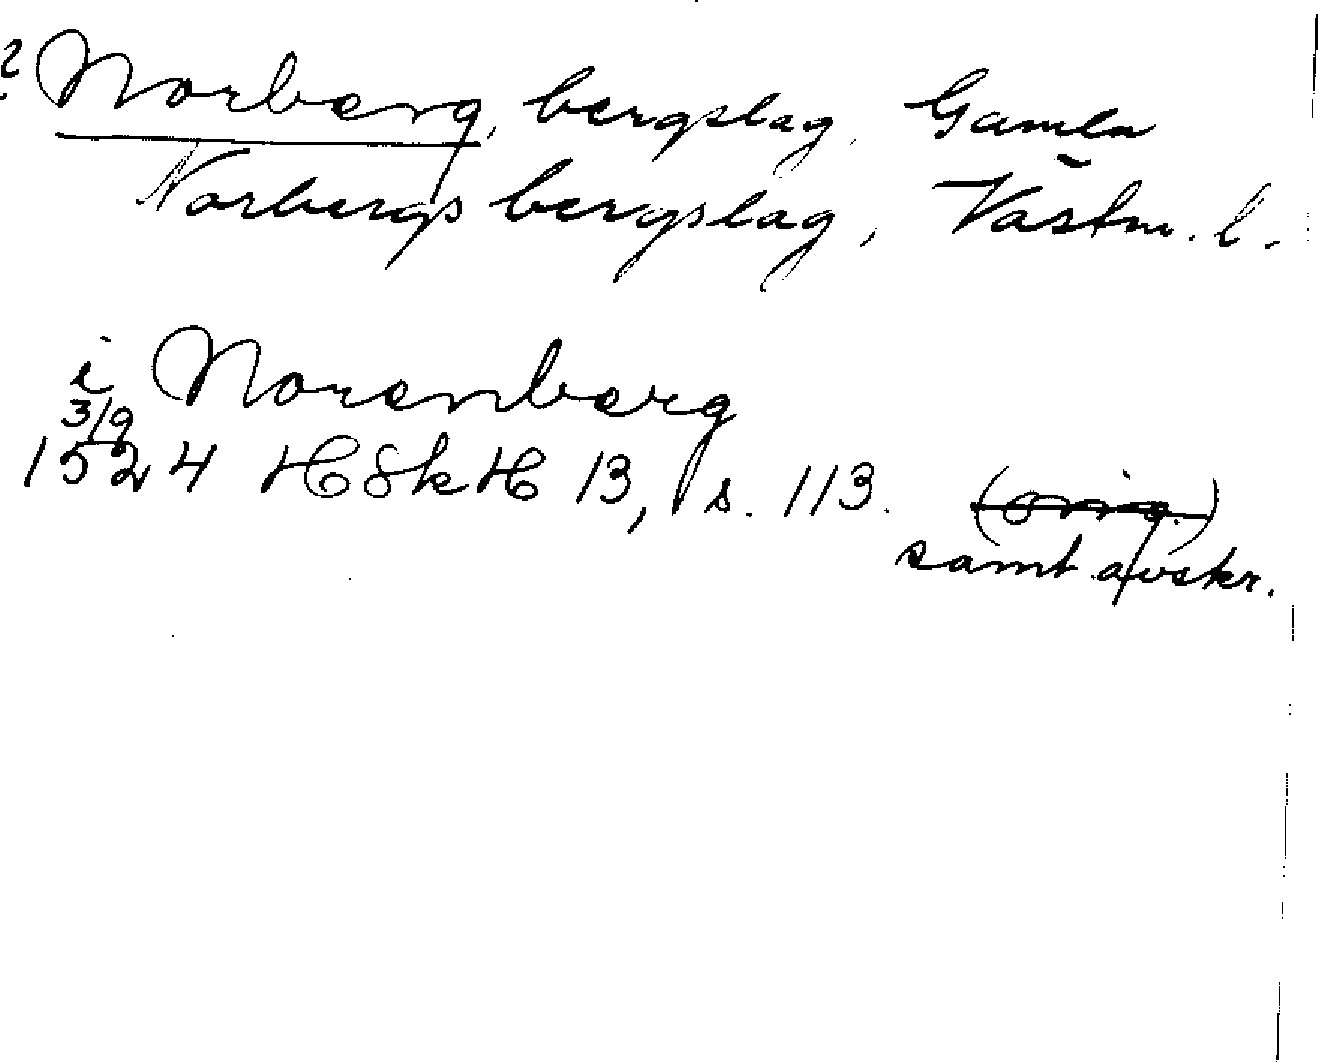 ? Norberg, bergslag, Gamla
Norbergs bergslag, Västm. l.
i Norenberg
3/9
1524 HSkH 13, s. 113. (orig.)
samt. avskr.